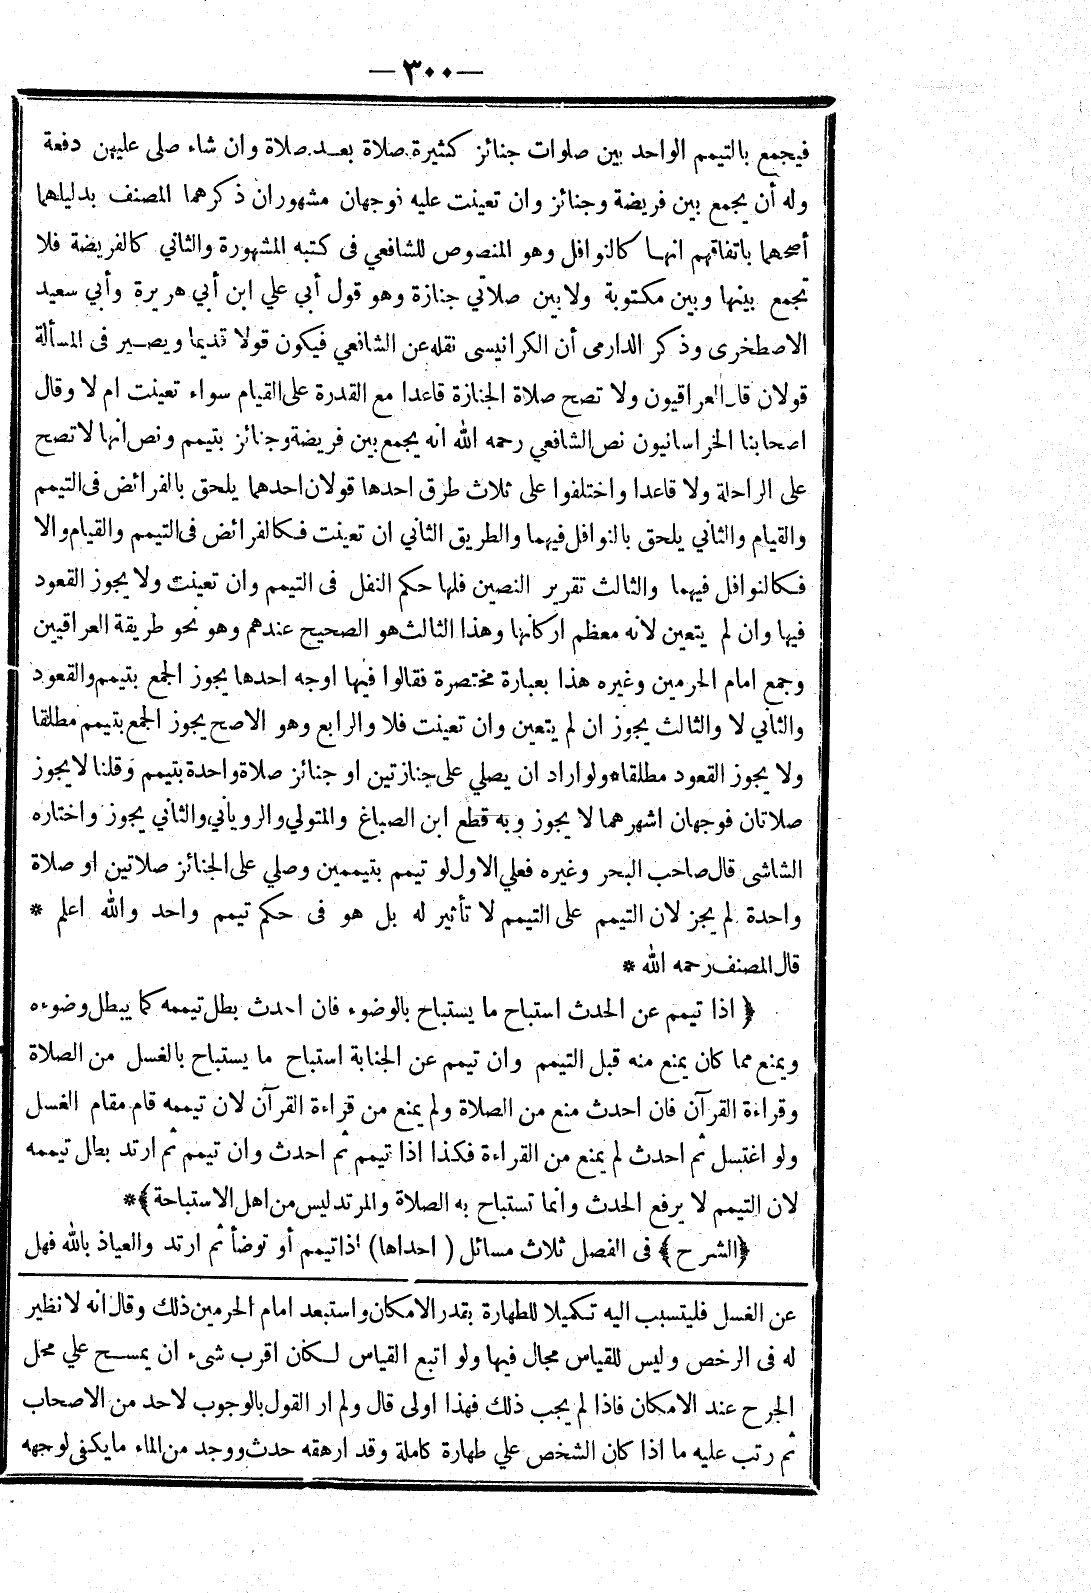 — ٣٠٠ —
فيجمع بالتيمم الواحد بين صلوات جنائز كثيرة صلاة بعد صلاة وان شاء صلى عليهن دفعة
وله أن يجمع بين فريضة وجنائز وان تعينت عليه فوجهان مشهوران ذكرهما المصنف بدليلهما
أصحهما باتفاقهم انها كالنوافل وهو المنصوص للشافعي فى كتبه المشهورة والثاني كالفريضة فلا
تجمع بينها وبين مكتوبة ولا بين صلاتي جنازة وهو قول أبي علي ابن أبي هريرة وأبي سعيد
الاصطخرى وذكر الدارمى أن الكرابيسى نقله عن الشافعي فيكون قولا قديما ويصير فى المسألة
قولان قال العراقيون ولا تصح صلاة الجنازة قاعدا مع القدرة على القيام سواء تعينت ام لا وقال
اصحابنا الخراسانيون نص الشافعي رحمه الله انه يجمع بين فريضة وجنائز بتيمم ونص انها لا تصح
على الراحلة ولا قاعدا واختلفوا على ثلاث طرق احدها قولان احدهما يلحق بالفرائض فى التيمم
والقيام والثاني يلحق بالنوافل فيهما والطريق الثاني ان تعينت فكالفرائض فى التيمم والقيام والا
فكالنوافل فيهما والثالث تقرير النصين فلها حكم النفل فى التيمم وان تعينت ولا يجوز القعود
فيها وان لم يتعين لانه معظم اركانها وهذا الثالث هو الصحيح عندهم وهو نحو طريقة العراقيين
وجمع امام الحرمين وغيره هذا بعبارة مختصرة فقالوا فيها اوجه احدها يجوز الجمع بتيمم والقعود
والثاني لا والثالث يجوز ان لم يتعين وان تعينت فلا والرابع وهو الاصح يجوز الجمع بتيمم مطلقا
ولا يجوز القعود مطلقا* ولو اراد ان يصلي على جنازتين او جنائز صلاة واحدة بتيمم وقلنا لا يجوز
صلاتان فوجهان اشهرهما لا يجوز وبه قطع ابن الصباغ والمتولي والروياني والثاني يجوز واختاره
الشاشى قال صاحب البحر وغيره فعلي الاول لو تيمم بتيممين وصلي على الجنائز صلاتين او صلاة
واحدة لم يجز لان التيمم على التيمم لا تأثير له بل هو فى حكم تيمم واحد والله اعلم *
قال المصنف رحمه الله *
﴿ اذا تيمم عن الحدث استباح ما يستباح بالوضوء فان احدث بطل تيممه كما يبطل وضوءه
ويمنع مما كان يمنع منه قبل التيمم وان تيمم عن الجنابة استباح ما يستباح بالغسل من الصلاة
وقراءة القرآن فان احدث منع من الصلاة ولم يمنع من قراءة القرآن لان تيممه قام مقام الغسل
ولو اغتسل ثم احدث لم يمنع من القراءة فكذا اذا تيمم ثم احدث وان تيمم ثم ارتد بطل تيممه
لان التيمم لا يرفع الحدث وانما تستباح به الصلاة والمرتد ليس من اهل الاستباحة ﴾*
﴿الشرح﴾ فى الفصل ثلاث مسائل ( احداها) اذا تيمم أو توضأ ثم ارتد والعياذ بالله فهل
عن الغسل فليتسبب اليه تكميلا للطهارة بقدر الامكان واستبعد امام الحرمين ذلك وقال انه لا نظير
له فى الرخص وليس للقياس مجال فيها ولو اتبع القياس لكان اقرب شىء ان يمسح علي محل
الجرح عند الامكان فاذا لم يجب ذلك فهذا اولى قال ولم ار القول بالوجوب لاحد من الاصحاب
ثم رتب عليه ما اذا كان الشخص علي طهارة كاملة وقد ارهقه حدث ووجد من الماء ما يكفى لوجهه